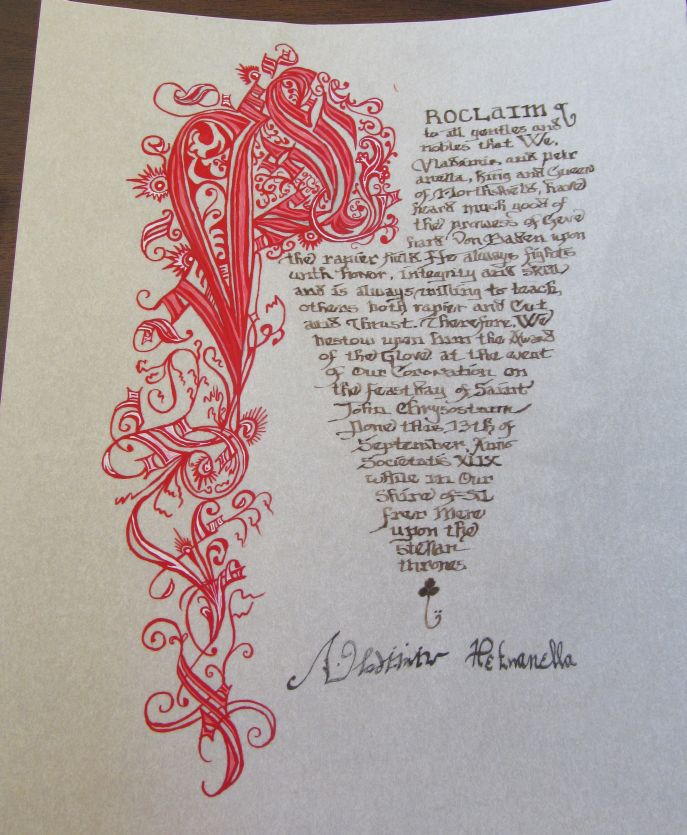 PROCLAIM
to all gentles and
nobles that We,
Vladimir, and Petr
anella, King and Queen
of Northshield, have
heard much good of
the prowess of Gere
hard Von Baden upon
the rapier field. He always fights
with honor, integrity and skill
and is always willing to teach
others both rapier and Cut
and Thrust. Therefore, We
bestow upon him the Award
of the Glove at the event
of Our Coronation on
the Feast Day of Saint
John Chrysostum
Done this 13th of
September Anno
Societatis XLIX
while in Our
Shire of
frer Mere
upon the
stellar
thrones
Vladimir Petranella